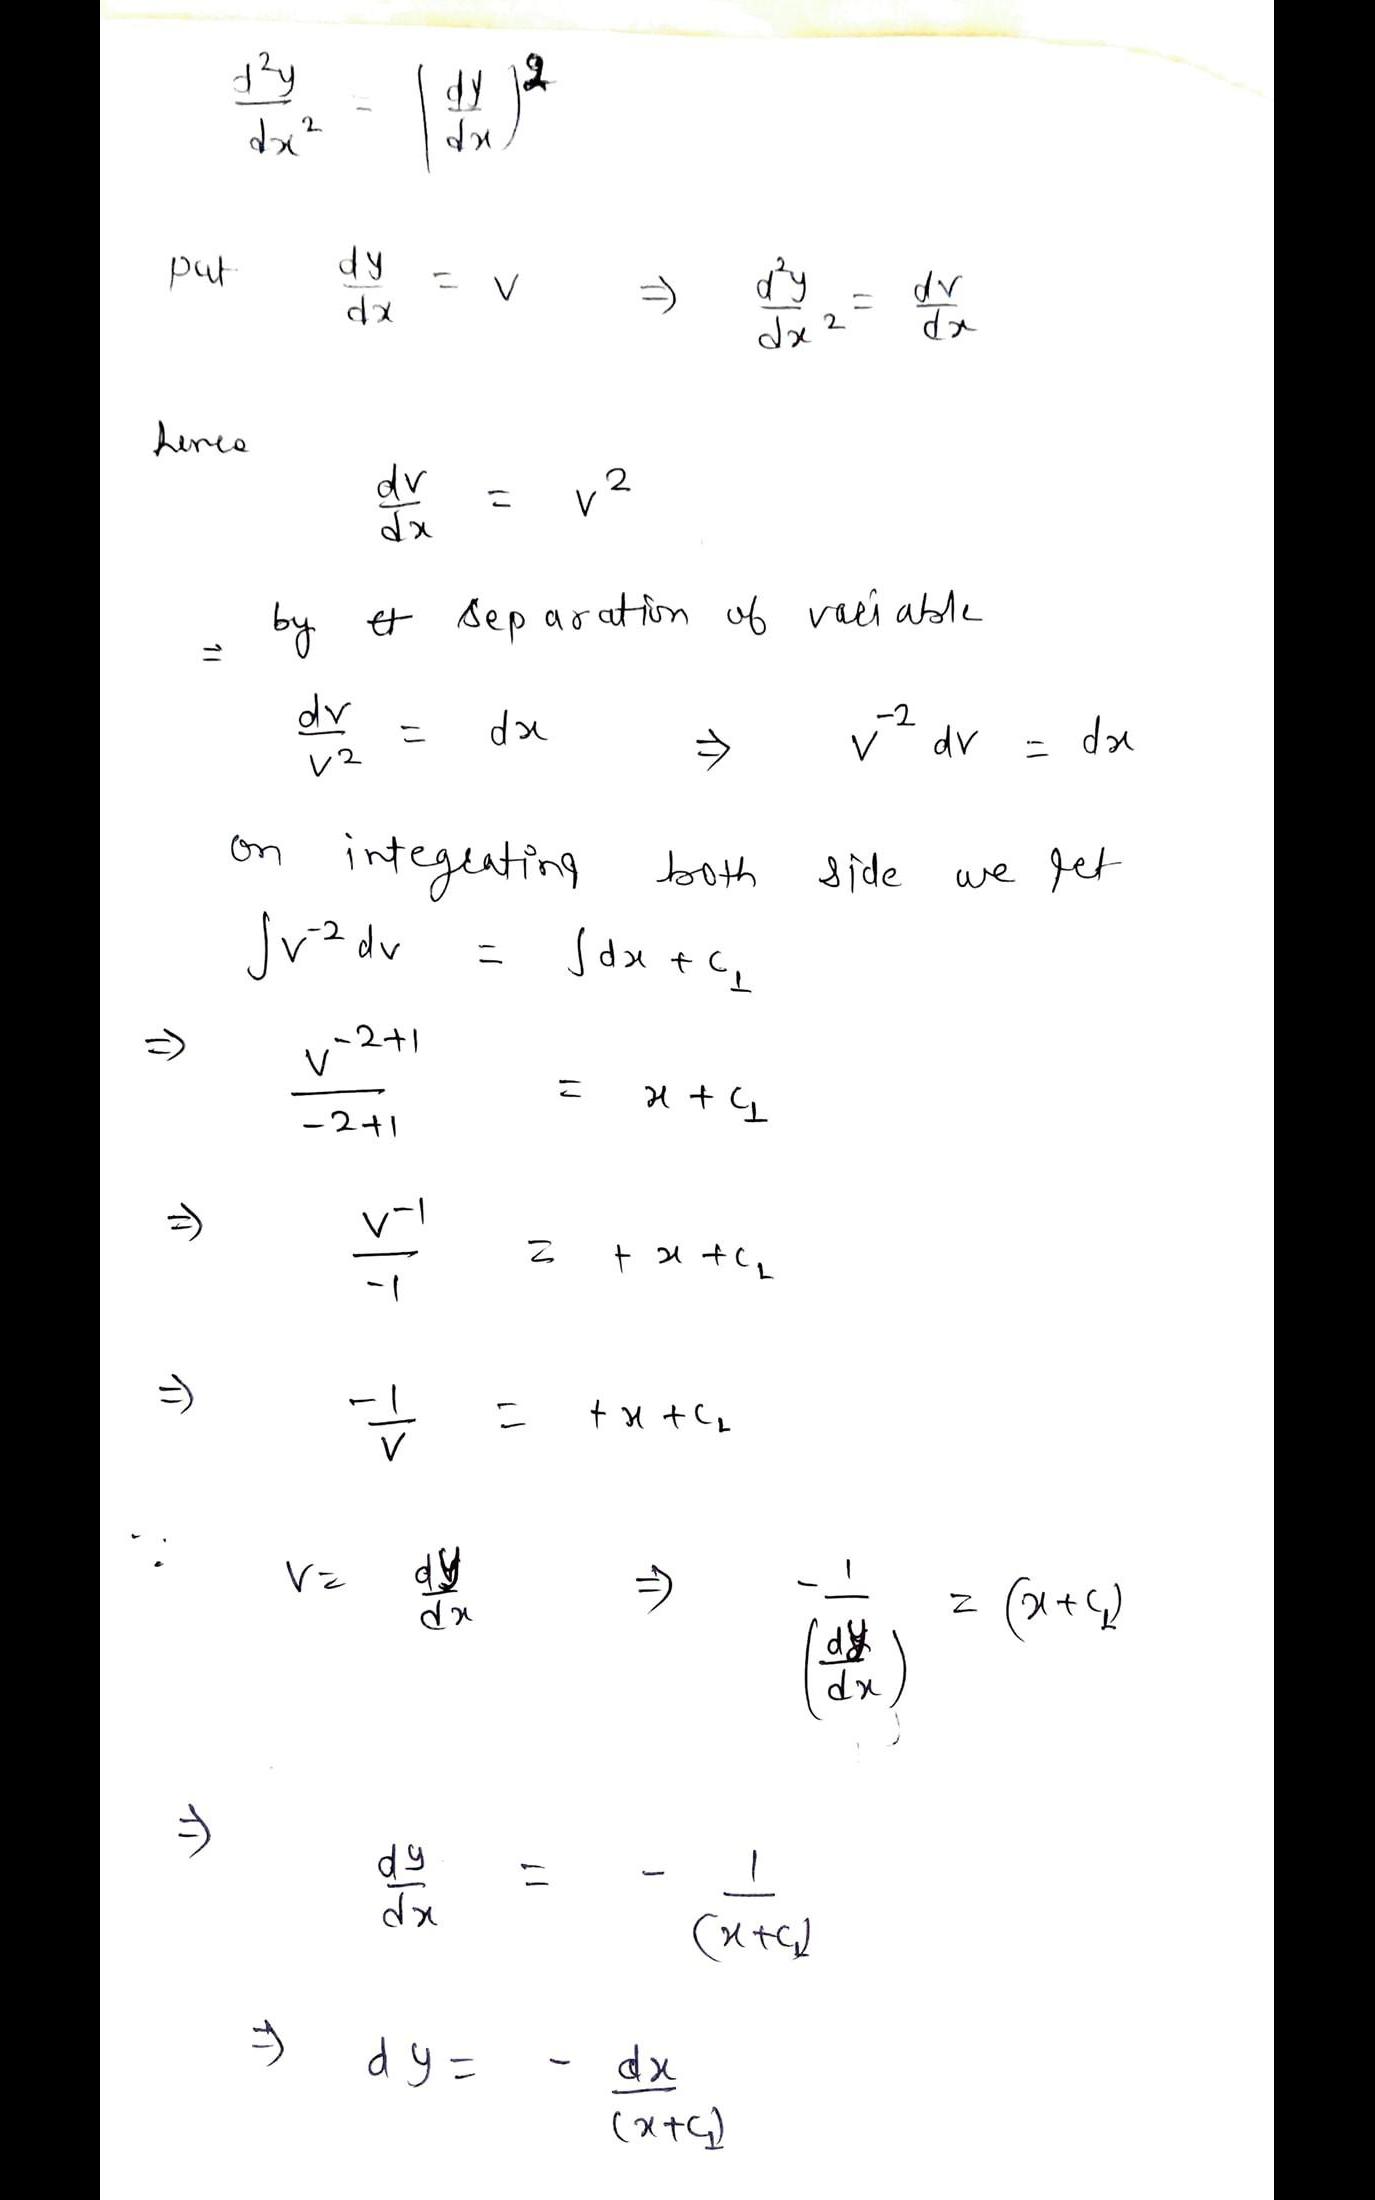 d²y/dx² = (dy/dx)²
put dy/dx = v ⇒ d²y/dx² = dv/dx
hence
dv/dx = v²
= by separation of variable
dv/v² = dx ⇒ v⁻² dv = dx
on integrating both side we get
∫v⁻² dv = ∫dx + c₁
⇒ v⁻²⁺¹/-2+1 = x + c₁
⇒ v⁻¹/-1 = + x + c₁
⇒ -1/v = + x + c₁
∵ v = dy/dx ⇒ -1/(dy/dx) = (x + c₁)
⇒ dy/dx = - 1/(x + c₁)
⇒ dy = - dx/(x + c₁)